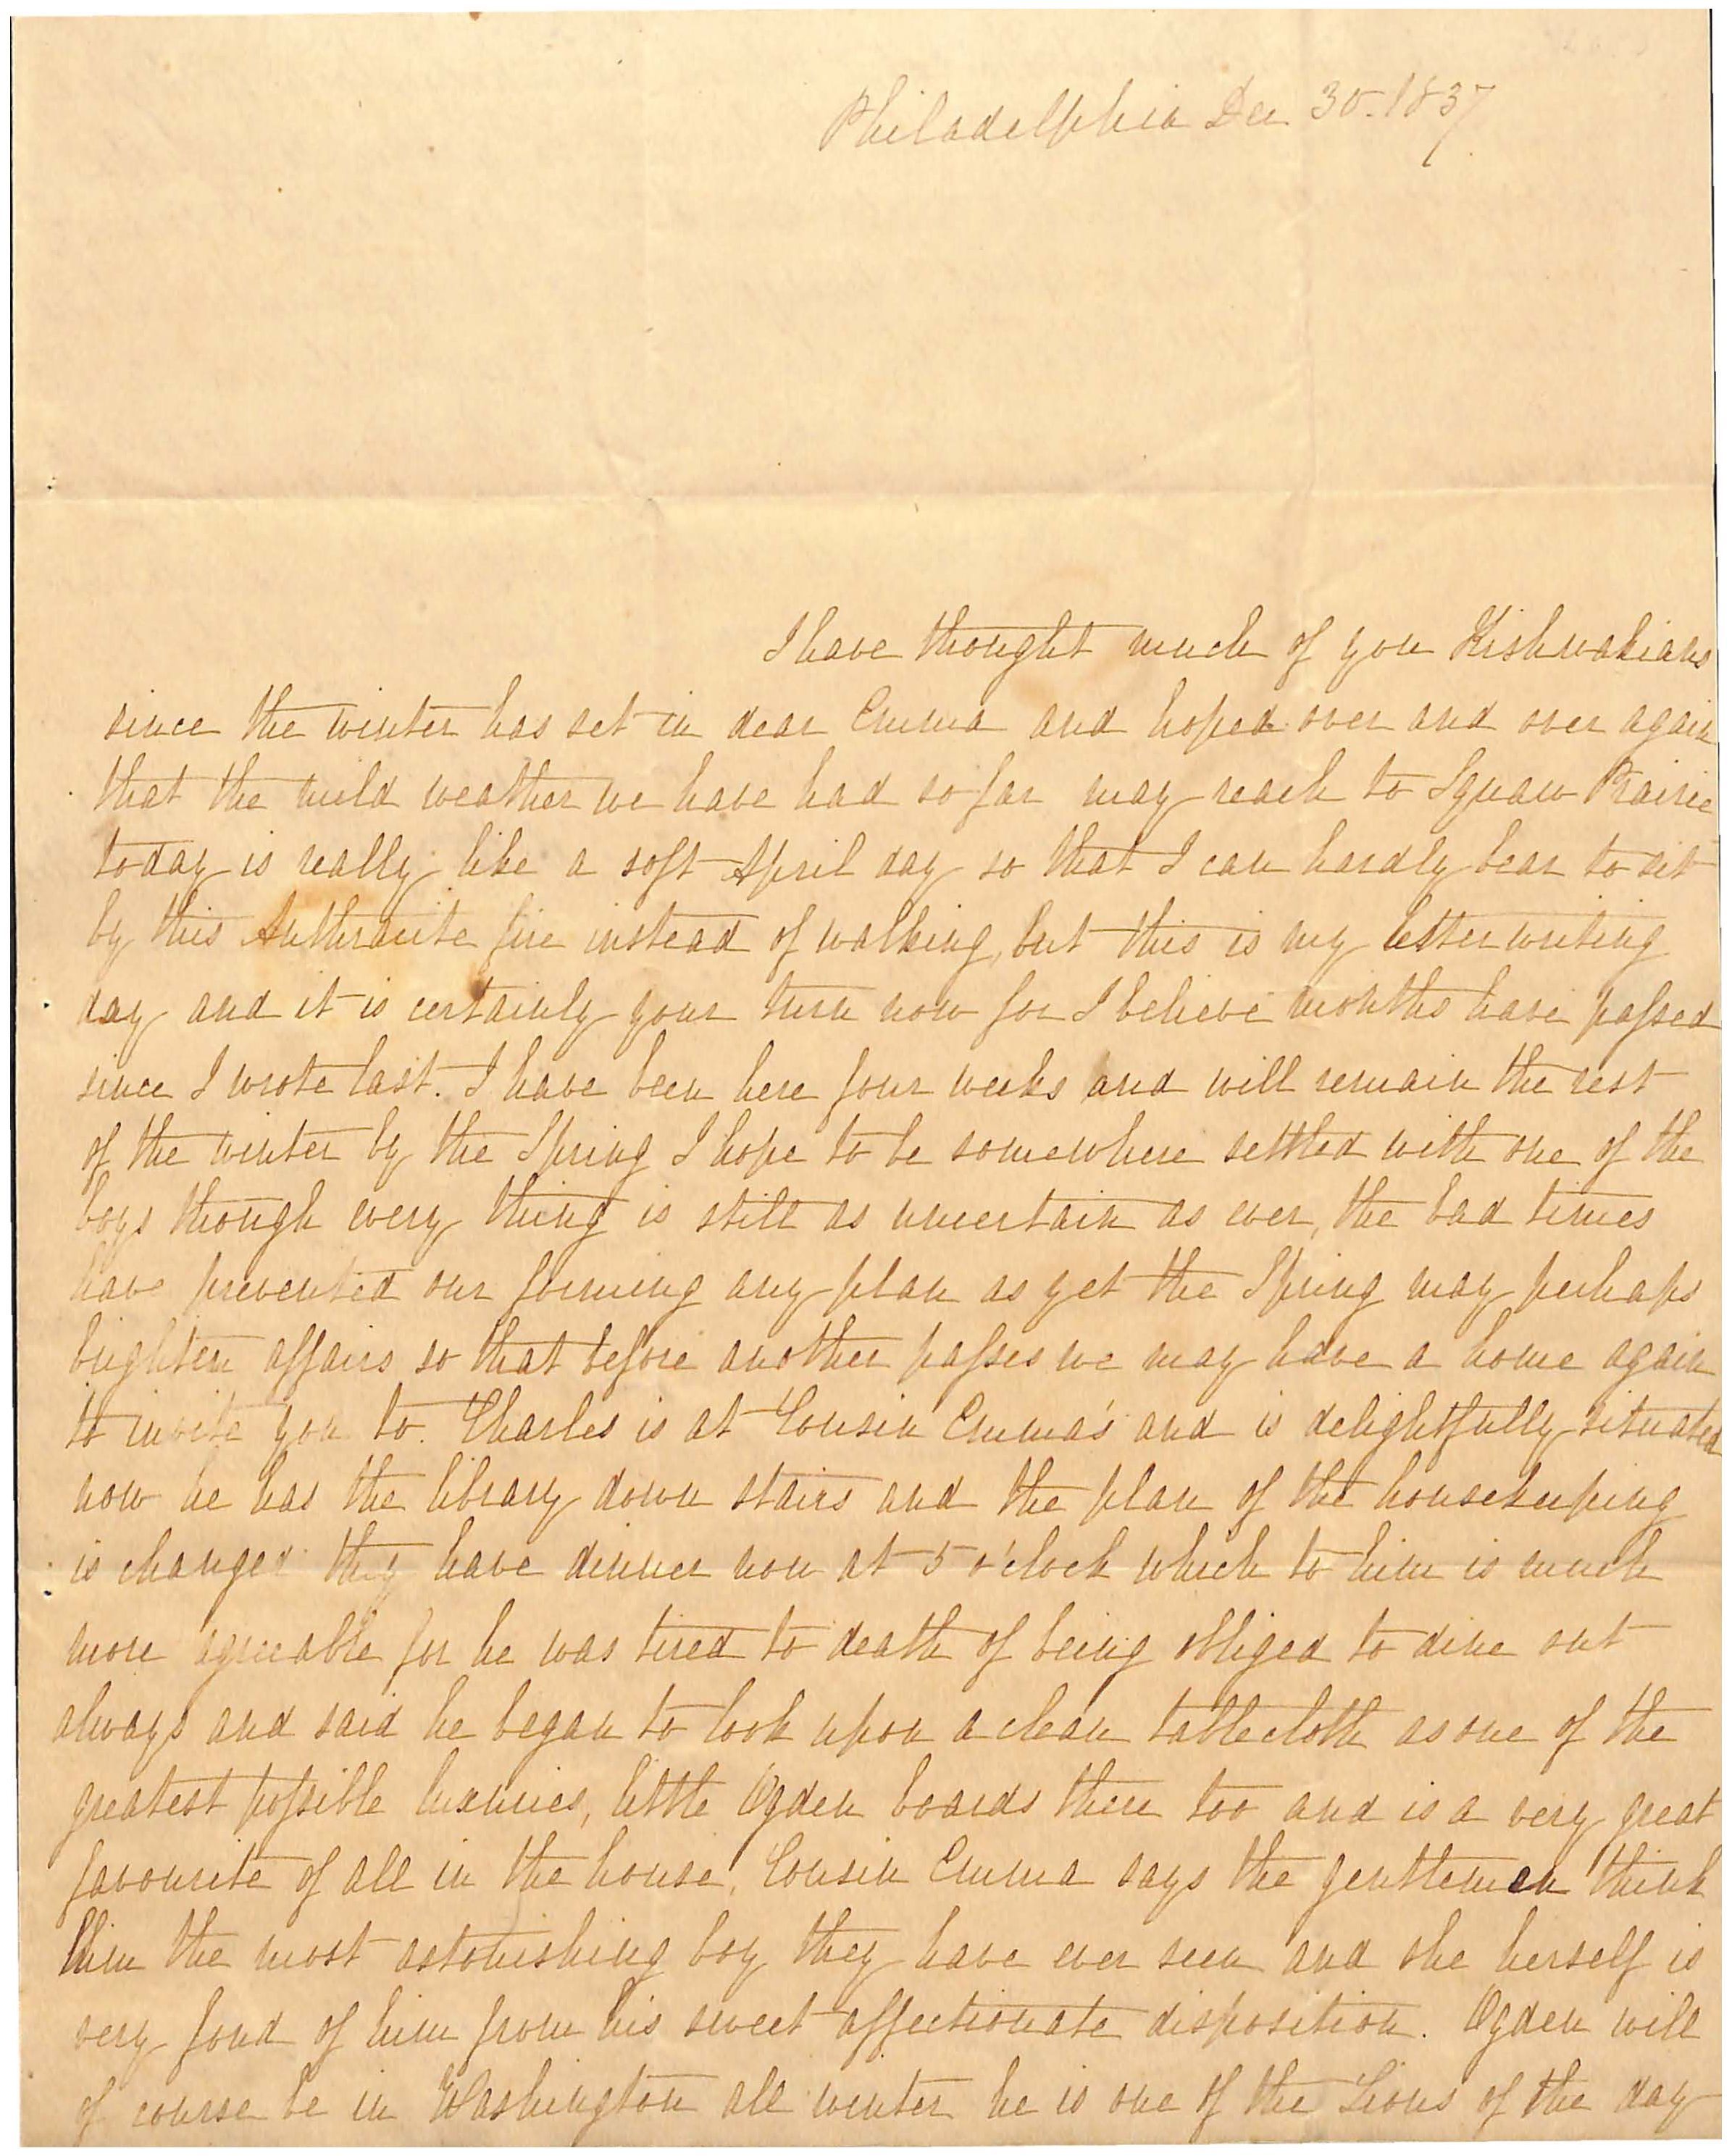 Philadelphia Dec 30. 1837
I have thought much of you Kishwakians
since the winter has set in dear Emma and hoped over and over again
that the mild weather we have had so far may reach to Squaw Prairie
today is really like a soft April day so that I can hardly bear to sit
by this Anthracite fire instead of walking, but this is my letter writing
day and it is certainly your turn now for I believe months have passed
since I wrote last. I have been here four weeks and will remain the rest
of the winter by the Spring I hope to be somewhere settled with one of the
boys though every thing is still as uncertain as ever, the bad times
have prevented our forming any plan as yet the Spring may perhaps
brighten affairs so that before another passes we may have a home again
to invite you to. Charles is at Cousin Emma's and is delightfully situated
now he has the library down stairs and the plan of the housekeeping
is changed they have dinner now at 5 o'clock which to him is much
more agreeable for he was tired to death of being obliged to dine out
always and said he began to look upon a clean tablecloth as one of the
greatest possible luxuries, little Ogden boards there too and is a very great
favourite of all in the house, Cousin Emma says the gentlemen think
him the most astonishing boy they have ever seen and she herself is
very fond of him from his sweet affectionate disposition. Ogden will
of course be in Washington all winter he is one of the Lions of the day